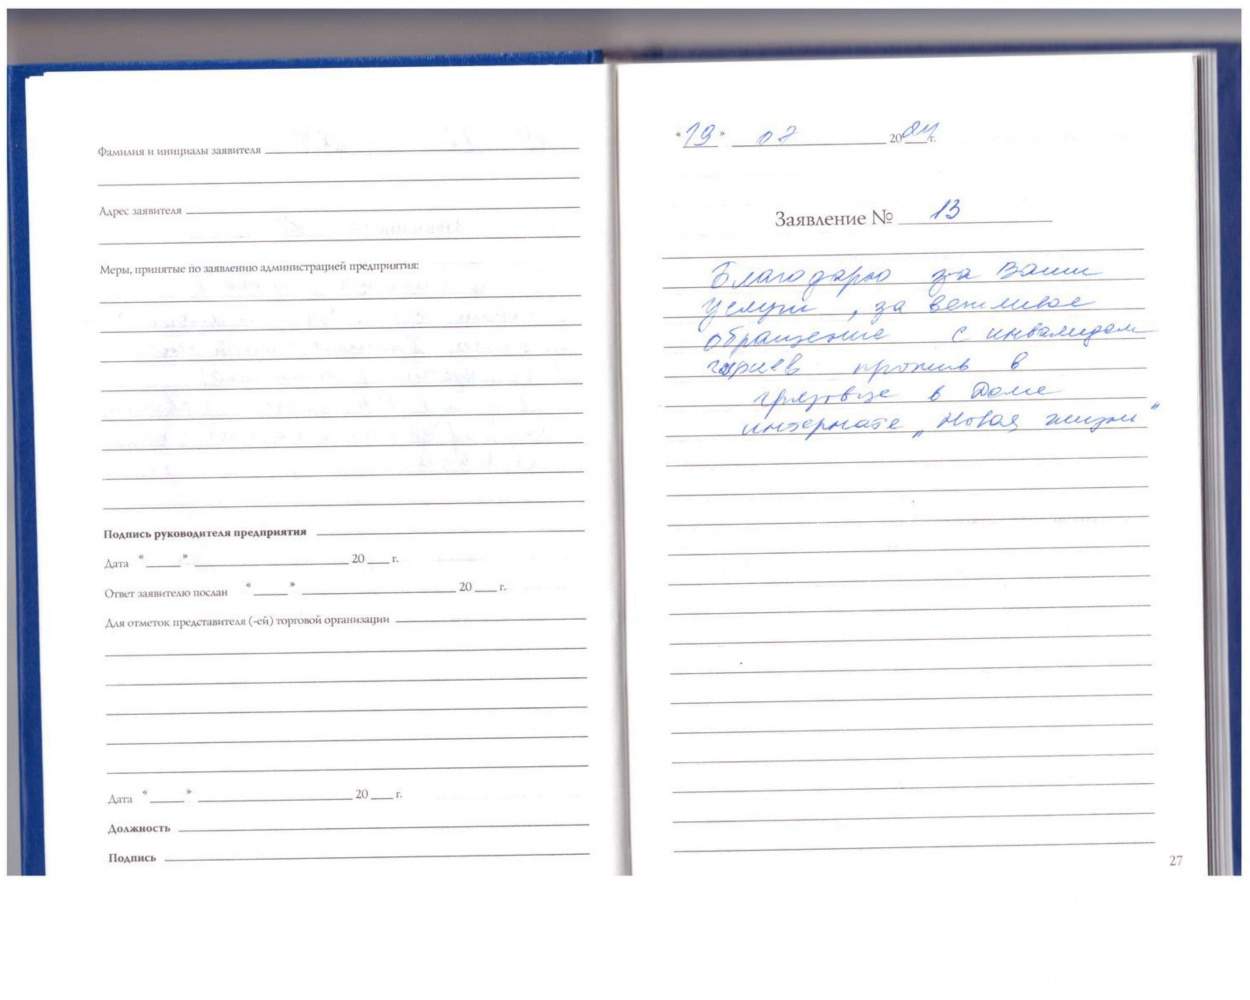 Фамилия и инициалы заявителя
Адрес заявителя
Меры, принятые по заявлению администрацией предприятия:
Подпись руководителя предприятия
Дата "___" ___ 20 ___ г.
Ответ заявителю послан "___" ___ 20 ___ г.
Для отметок представителя (-ей) торговой организации
Дата "___" ___ 20 ___ г.
Должность
Подпись
"19" 02 20 г.
Заявление № 13
Благодарю за Ваши
услуги, за вежливое
обращение с инвалидом
в
грязовце в Доме
интернате „Новая жизнь"
27